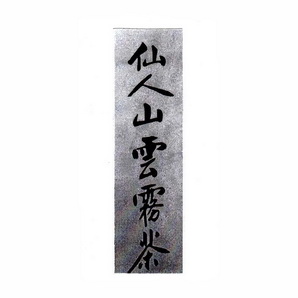 仙人山雲霧茶